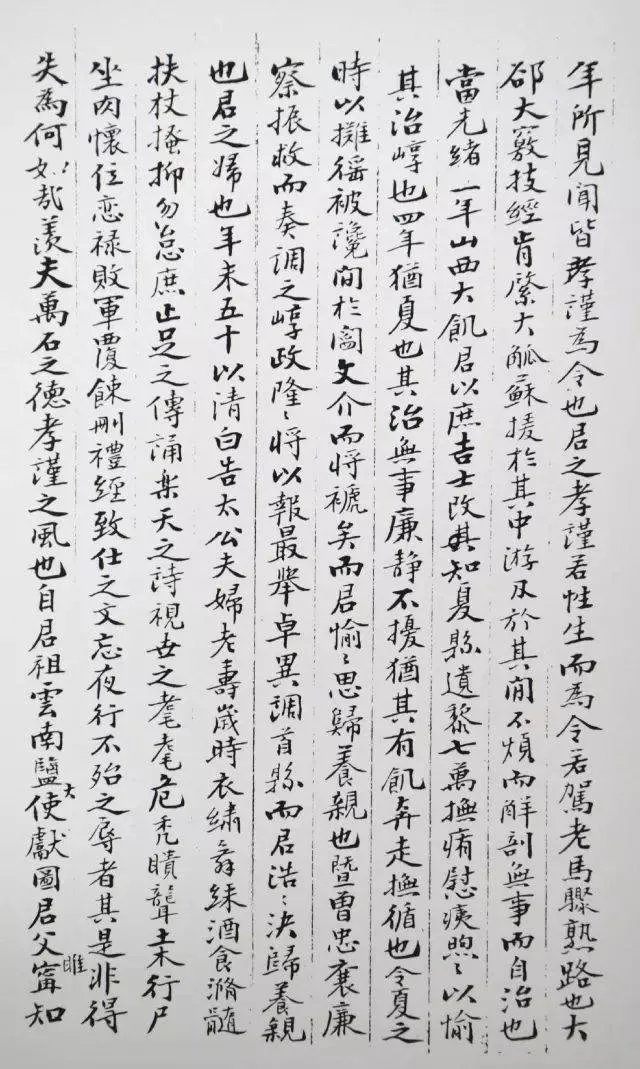 年所見聞皆孝謹為令也君之孝謹若性生而為令若駕老馬驟熟路也大
郤大竅技經肯綮大觚蘇援於其中游刃於其間不煩而解剖無事而自治也
當光緒一年山西大飢君以庶吉士改其知夏縣遺黎七萬撫痏慰痍煦〻以愉
其治崞也四年猶夏也其治無事廉静不擾猶其有飢奔走撫循也令夏之
時以攤徭被讒間於閻文介而将褫矣而君愉〻思歸養親也暨曾忠襄廉
察振救而奏調之崞政隆〻将以報最舉卓異調首縣而君浩〻決歸養親
也君之婦也年未五十以清白告太公夫婦老壽歲時衣繡舞綵酒食滫髓
扶杖搔抑勿怠庶止足之傳誦樂天之詩視世之耄耄危禿聵聾土木行尸
坐肉懷位恋禄敗軍覆餗刪禮經致仕之文忘夜行不殆之辱者其是非得
失為何如哉羨夫萬石之德孝謹之風也自君祖雲南鹽大使獻圖君父甯睢知